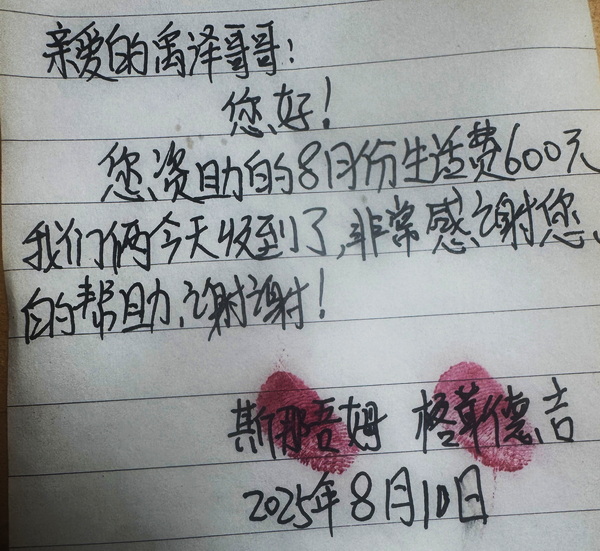 亲爱的禹泽哥哥:
您好!
您资助的8月份生活费600元
我们俩今天收到了,非常感谢您
的帮助,谢谢!
斯那吾姆 格茸德吉
2025年8月10日